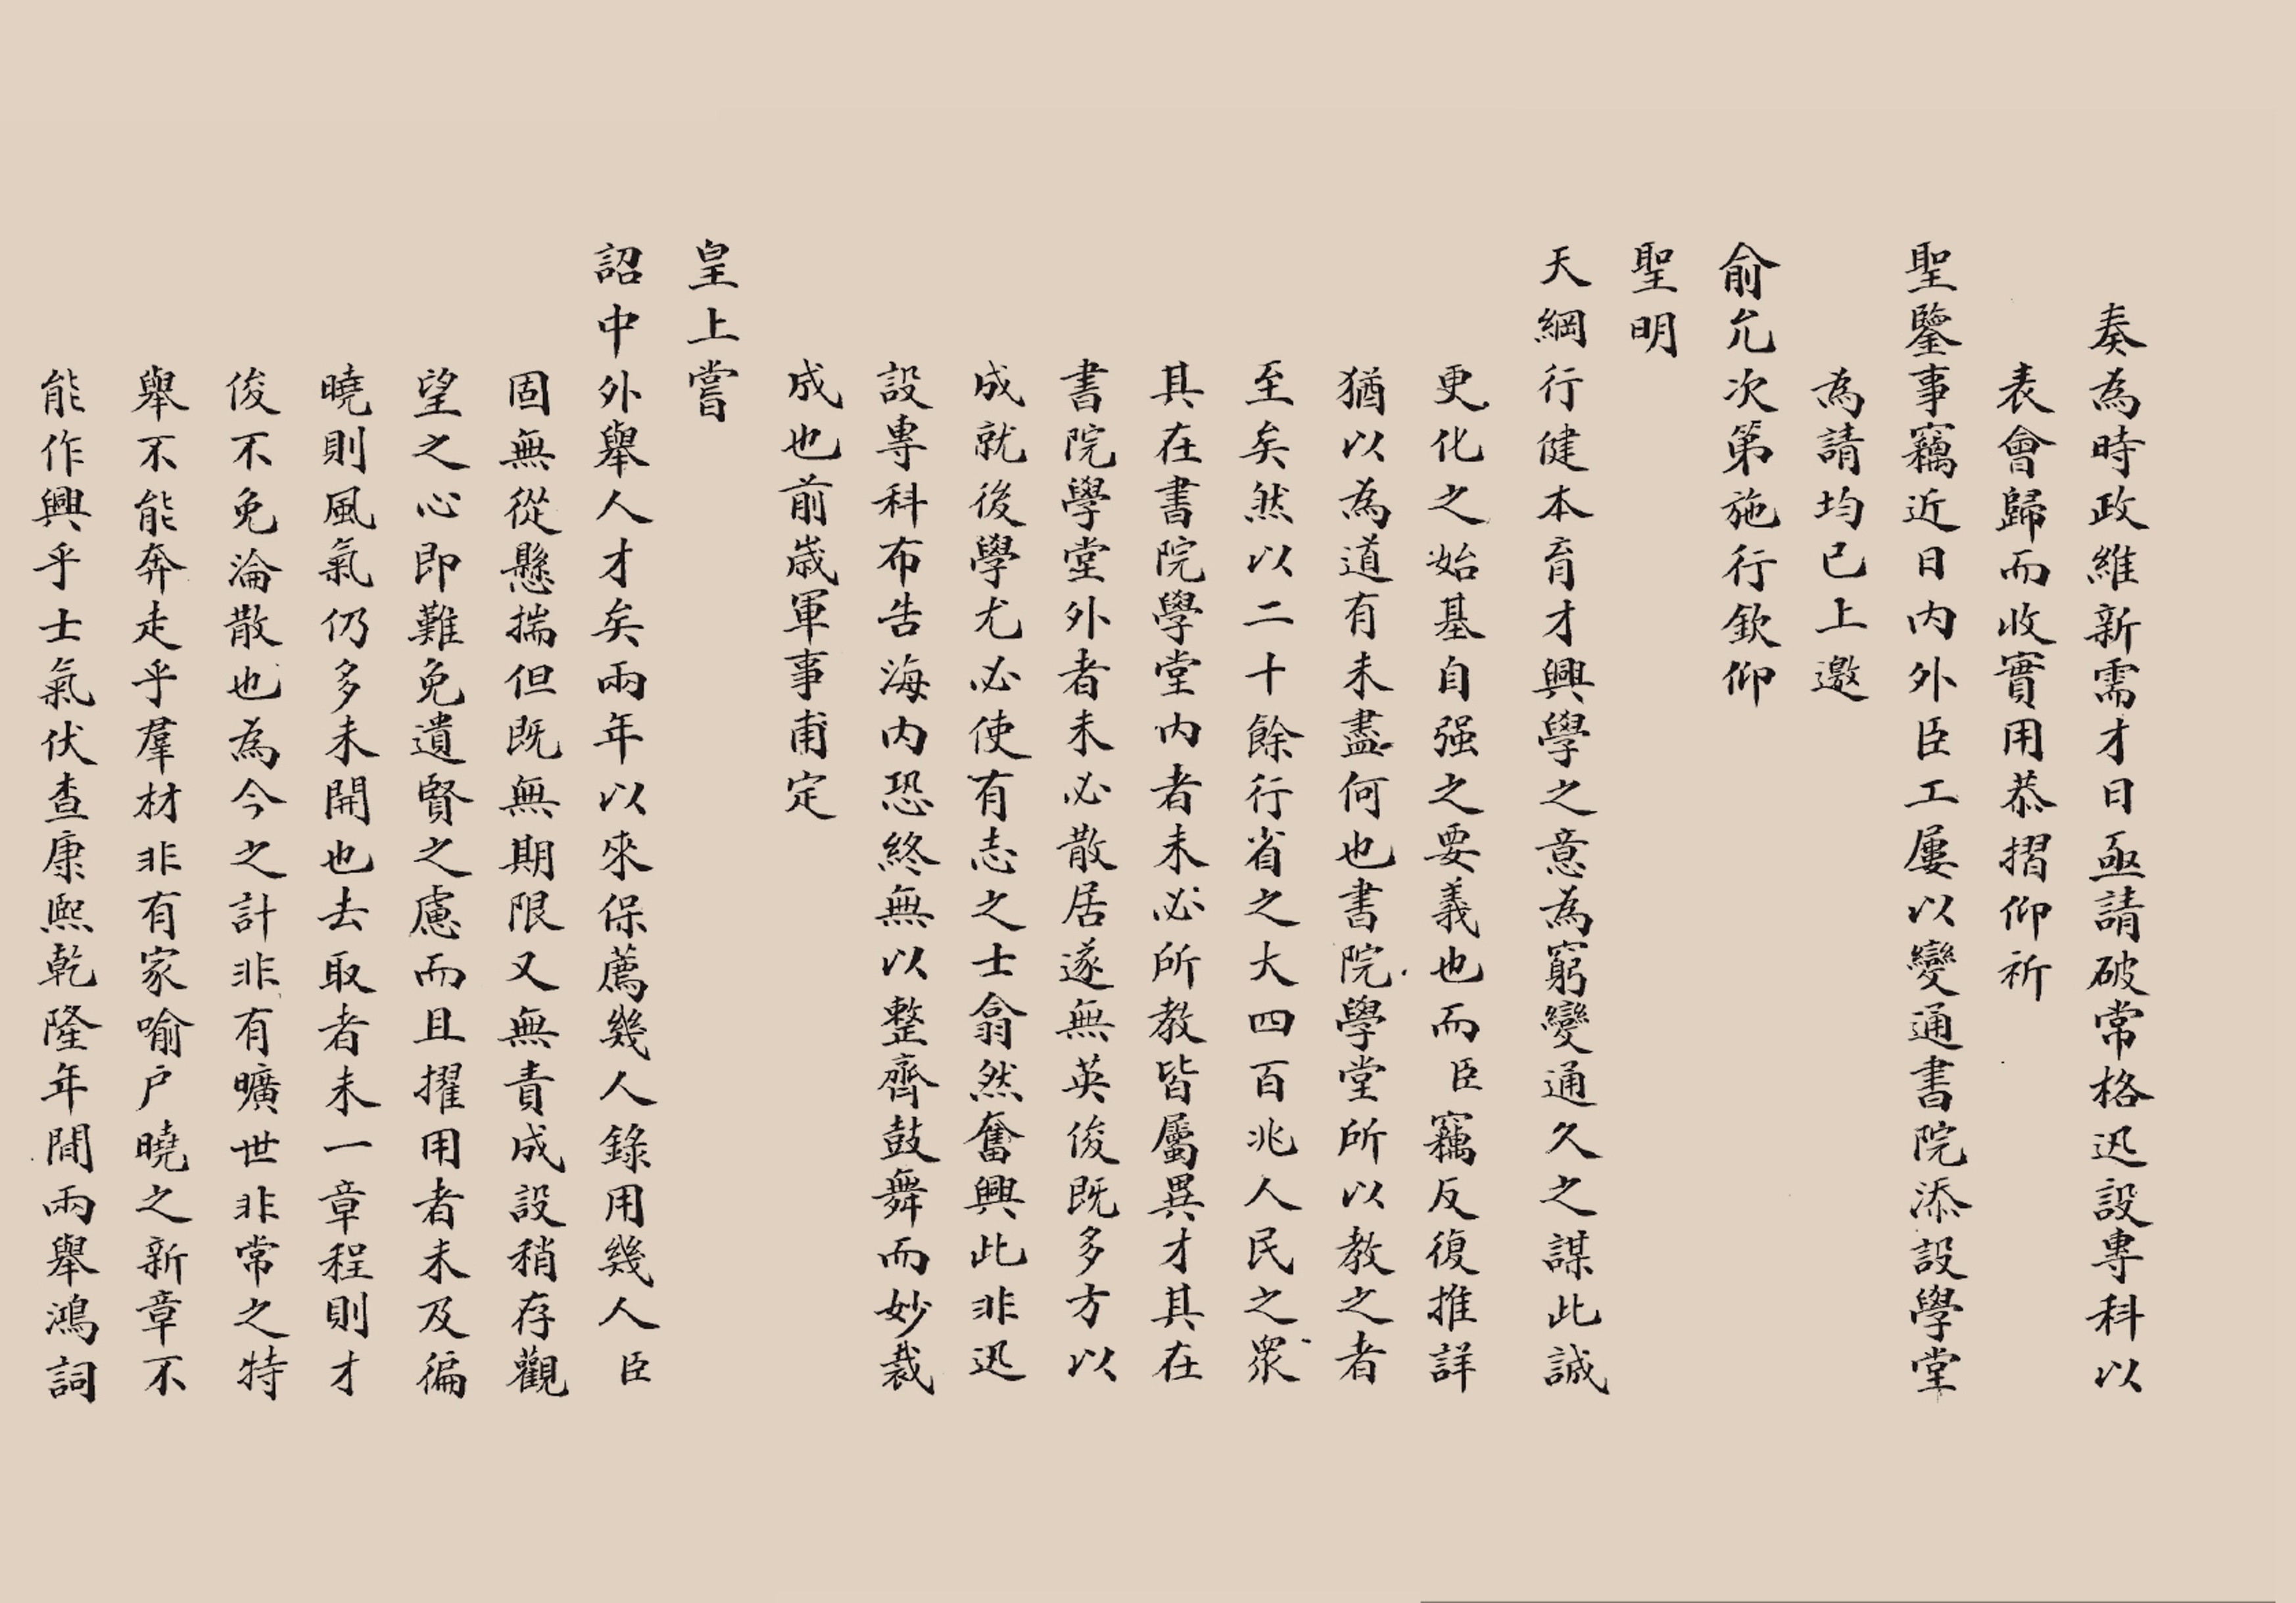 奏為時政維新需才日亟請破常格迅設專科以
表會歸而收實用恭摺仰祈
聖鑒事竊近日內外臣工屢以變通書院添設學堂
為請均已上邀
俞允次第施行欽仰
聖明
天綱行健本育才興學之意為窮變通久之謀此誠
更化之始基自强之要義也而臣竊反復推詳
猶以為道有未盡何也書院學堂所以教之者
至矣然以二十餘行省之大四百兆人民之衆
其在書院學堂內者未必所教皆屬異才其在
書院學堂外者未必散居遂無英俊既多方以
成就後學尤必使有志之士翕然奮興此非迅
設專科布告海內恐終無以整齊鼓舞而妙裁
成也前歲軍事甫定
皇上嘗
詔中外舉人才矣兩年以來保薦幾人錄用幾人臣
固無從懸揣但既無期限又無責成設稍存觀
望之心即難免遺賢之慮而且擢用者未及徧
曉則風氣仍多未開也去取者未一章程則才
俊不免淪散也為今之計非有曠世非常之特
舉不能奔走乎羣材非有家喻户曉之新章不
能作興乎士氣伏查康熙乾隆年間兩舉鴻詞